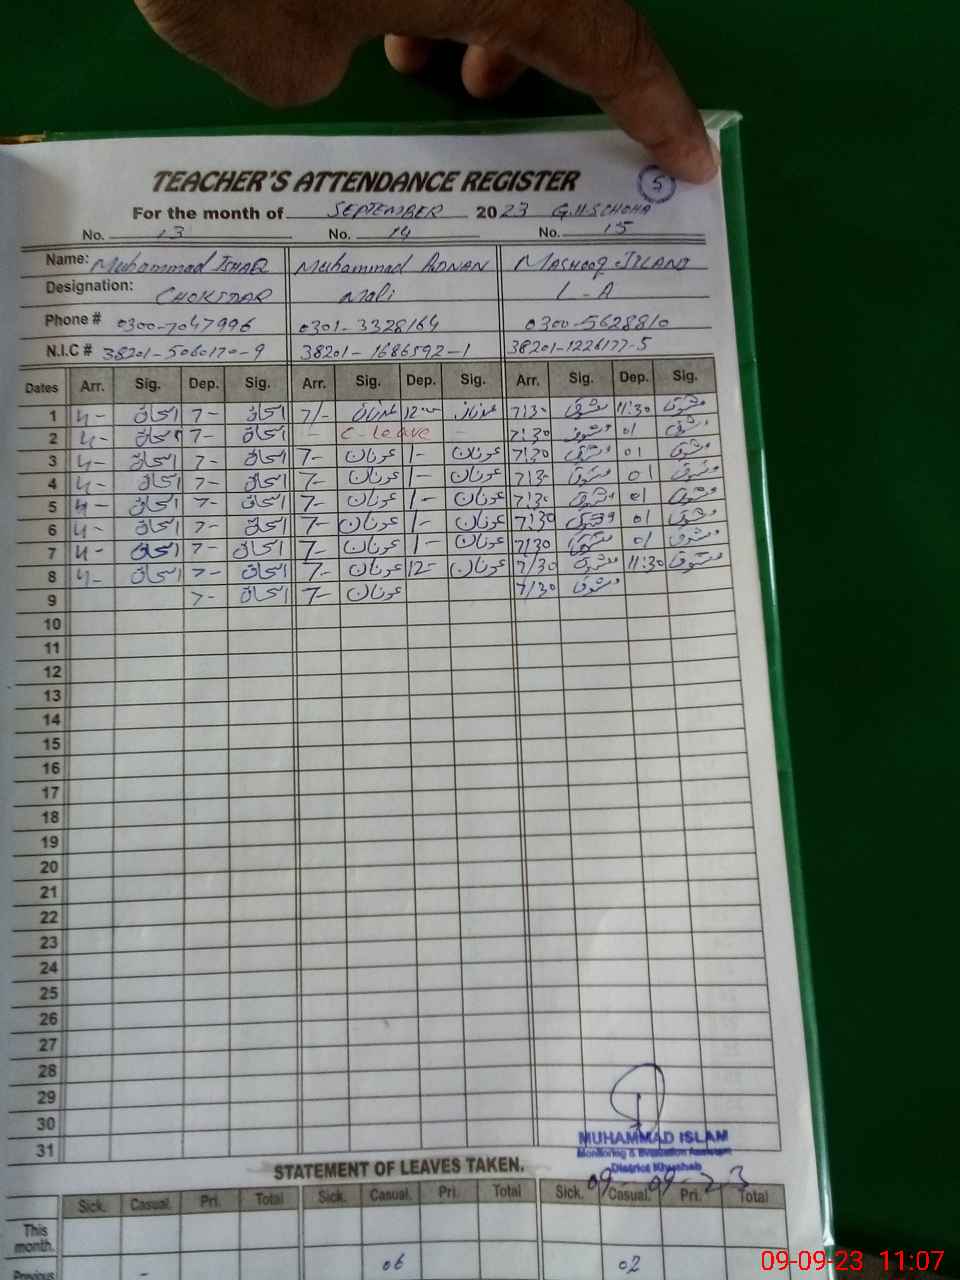 TEACHER'S ATTENDANCE REGISTER 5
For the month of SEPTEMBER 2023 G.H.S CHOHA
No. 13 No. 14 No. 15
Name: Muhammad ISHAQ Muhammad ADNAN MASHOOQ
Designation: CHOKIDAR Mali L-A
Phone # 0300-7047996 0301-3328164 0300-5628810
N.I.C # 38201-5060170-9 38201-1686592-1 38201-1226177-5
Dates Arr. Sig. Dep. Sig. Arr. Sig. Dep. Sig. Arr. Sig. Dep. Sig.
1 4- اسحاق 7- اسحاق 7/- عدنان 12- عدنان 7130 معشوق 11:30 معشوق
2 4- اسحاق 7- اسحاق - C-Leave - 7:30 معشوق 01 معشوق
3 4- اسحاق 7- اسحاق 7- عدنان 1- عدنان 7130 معشوق 01 معشوق
4 4- اسحاق 7- اسحاق 7- عدنان 1- عدنان 7130 معشوق 01 معشوق
5 4- اسحاق 7- اسحاق 7- عدنان 1- عدنان 7130 معشوق 01 معشوق
6 4- اسحاق 7- اسحاق 7- عدنان 1- عدنان 7130 معشوق 01 معشوق
7 4- اسحاق 7- اسحاق 7- عدنان 1- عدنان 7130 معشوق 01 معشوق
8 4- اسحاق 7- اسحاق 7- عدنان 12- عدنان 7/30 معشوق 11:30 معشوق
9 7- اسحاق 7- عدنان 7/30 معشوق
10
11
12
13
14
15
16
17
18
19
20
21
22
23
24
25
26
27
28
29
30
31
MUHAMMAD ISLAM
Monitoring & Evaluation Assistant
District Khushab
09-09-23
STATEMENT OF LEAVES TAKEN.
Sick. Casual. Pri. Total Sick. Casual. Pri. Total Sick. Casual. Pri. Total
This
month.
Previous - 06 02
09-09-23 11:07